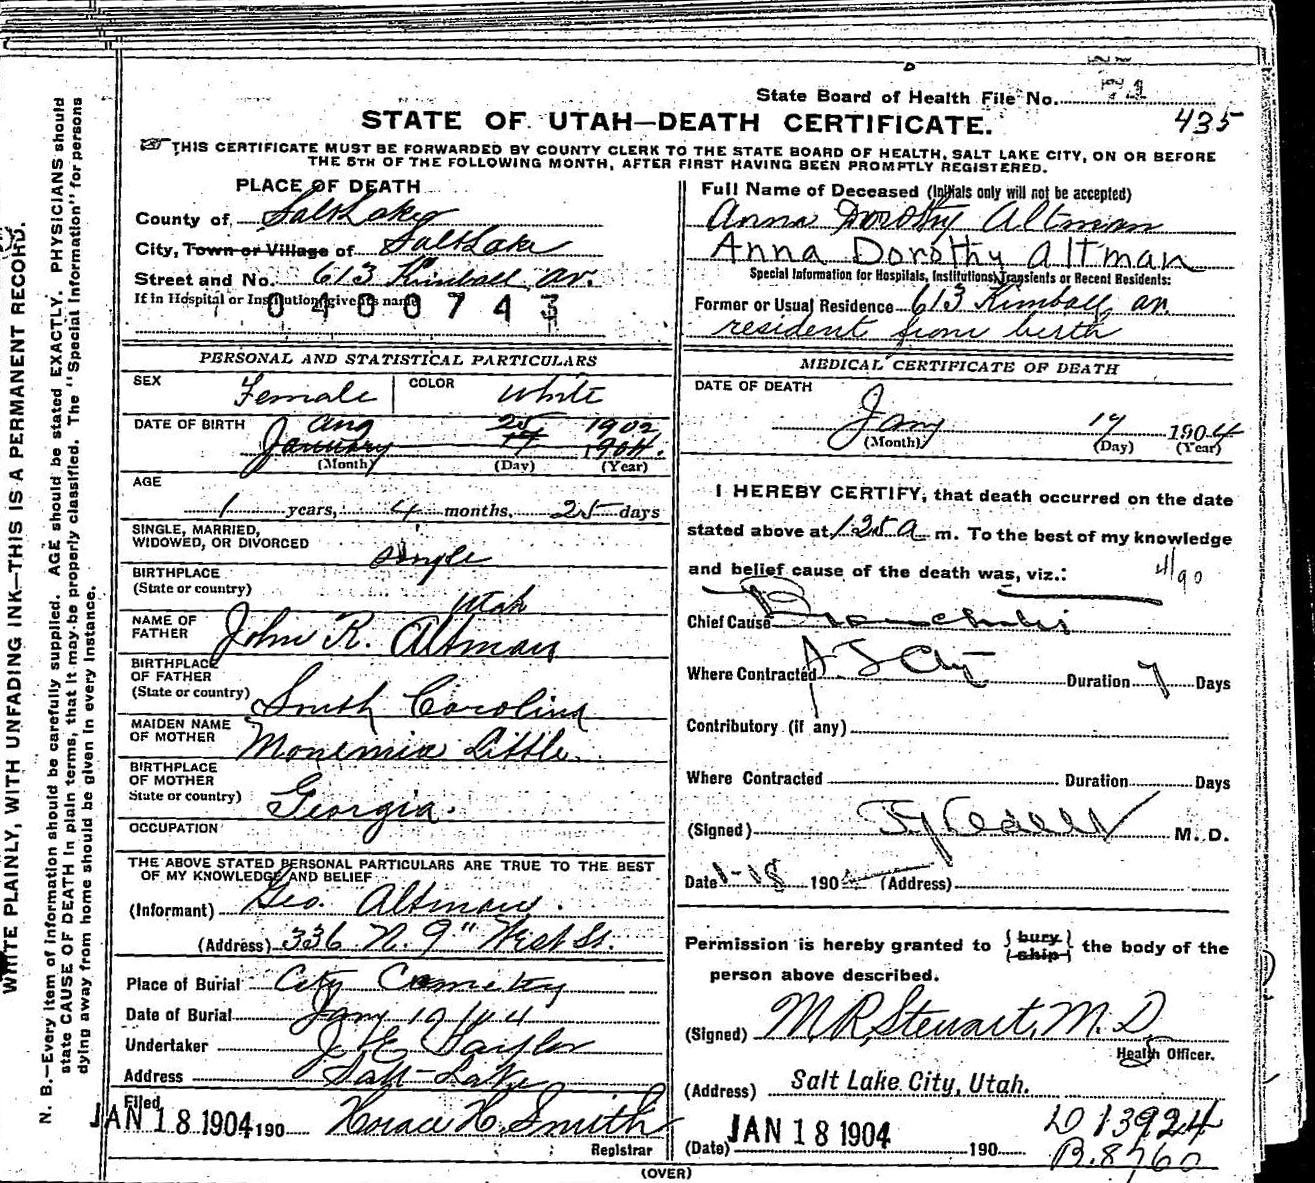 State Board of Health File No. 71
435
STATE OF UTAH—DEATH CERTIFICATE.
THIS CERTIFICATE MUST BE FORWARDED BY COUNTY CLERK TO THE STATE BOARD OF HEALTH, SALT LAKE CITY, ON OR BEFORE
THE 5TH OF THE FOLLOWING MONTH, AFTER FIRST HAVING BEEN PROMPTLY REGISTERED.
PLACE OF DEATH
County of Salt Lake
City, Town or Village of Salt Lake
Street and No. 613 Kimball av.
If in Hospital or Institution, give its name
0400743
PERSONAL AND STATISTICAL PARTICULARS
SEX Female COLOR White
DATE OF BIRTH Aug 25 1902
January 17 1904.
(Month) (Day) (Year)
AGE
1 years, 4 months, 25 days
SINGLE, MARRIED,
WIDOWED, OR DIVORCED single
BIRTHPLACE
(State or country) Utah
NAME OF
FATHER John R. Altman
BIRTHPLACE
OF FATHER
(State or country) South Carolina
MAIDEN NAME
OF MOTHER Monemia Little
BIRTHPLACE
OF MOTHER
State or country) Georgia.
OCCUPATION
THE ABOVE STATED PERSONAL PARTICULARS ARE TRUE TO THE BEST
OF MY KNOWLEDGE AND BELIEF
(Informant) Geo. Altman.
(Address) 336 N. 9" West St.
Place of Burial City Cemetery
Date of Burial Jany 19
Undertaker Taylor
Address Salt Lake
Filed
JAN 18 1904 190 Horace H. Smith
Registrar
(OVER)
Full Name of Deceased (Initials only will not be accepted)
Anna Dorothy Altman
Anna Dorothy Altman
Special Information for Hospitals, Institutions, Transients or Recent Residents:
Former or Usual Residence 613 Kimball av.
resident from birth
MEDICAL CERTIFICATE OF DEATH
DATE OF DEATH
Jany 17 1904
(Month) (Day) (Year)
I HEREBY CERTIFY, that death occurred on the date
stated above at 1 25 a m. To the best of my knowledge
and belief cause of the death was, viz.:
4/90
Chief Cause Bronchitis
Where Contracted City Duration 7 Days
Contributory (if any)
Where Contracted Duration Days
(Signed) M. D.
Date 1-18 190 (Address)
Permission is hereby granted to {bury} {ship} the body of the
person above described.
(Signed) M R Stewart, M. D.
Health Officer.
(Address) Salt Lake City, Utah.
(Date) JAN 18 1904 190
D 13924
B. 8760
WRITE PLAINLY, WITH UNFADING INK—THIS IS A PERMANENT RECORD.
N. B.—Every item of information should be carefully supplied. AGE should be stated EXACTLY. PHYSICIANS should
state CAUSE OF DEATH in plain terms, that it may be properly classified. The "Special Information" for persons
dying away from home should be given in every instance.